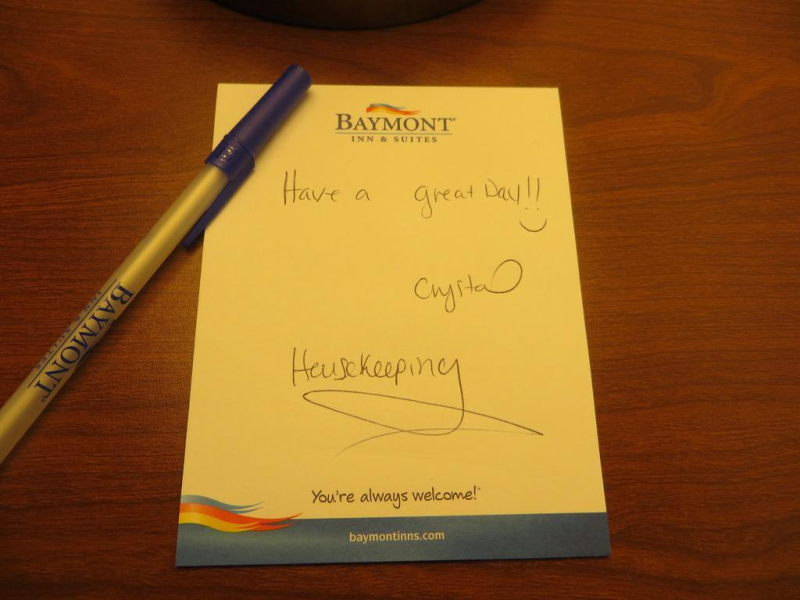 BAYMONT®
INN & SUITES
Have a great Day!!
Crystal
Housekeeping
You're always welcome!®
baymontinns.com
BAYMONT
INN & SUITES